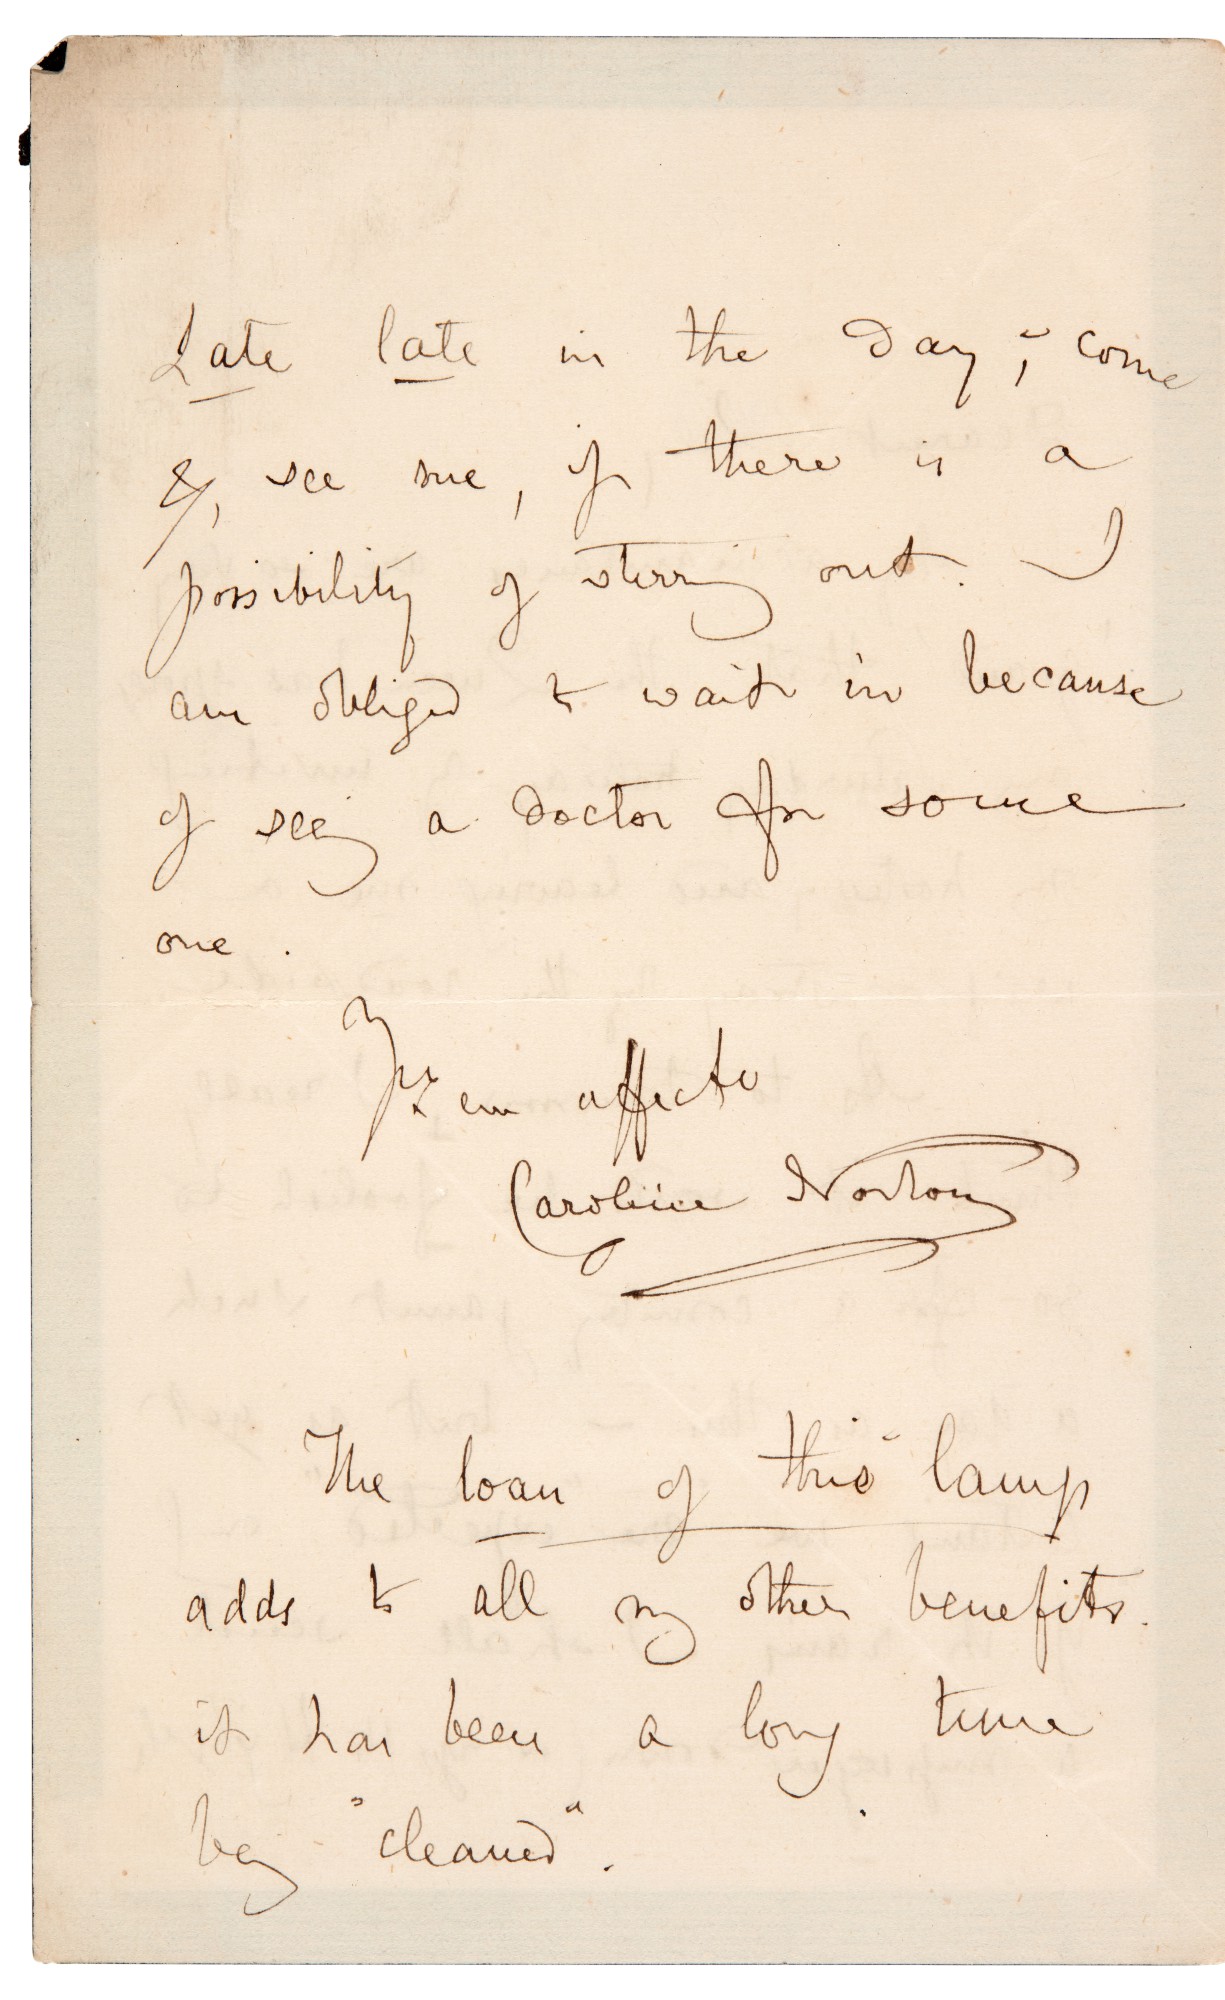 Late late in the day; come
&, see me, if there is a
possibility of stirring out. I
am obliged to wait in because
of seeing a doctor for some
one.
Yrs affecte
Caroline Norton
The loan of this lamp
adds to all my other benefits.
it has been a long time
being "cleaned".